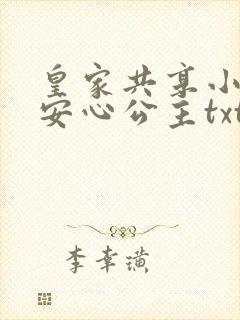 皇家共享小
安心公主txt
李幸璜